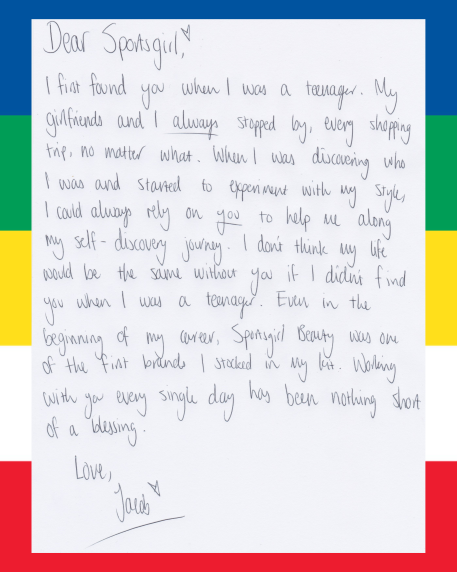 Dear Sportsgirl,
I first found you when I was a teenager. My
girlfriends and I always stopped by, every shopping
trip, no matter what. When I was discovering who
I was and started to experiment with my style,
I could always rely on you to help me along
my self-discovery journey. I don't think my life
would be the same without you if I didn't find
you when I was a teenager. Even in the
beginning of my career, Sportsgirl Beauty was one
of the first brands I stocked in my kit. Working
with you every single day has been nothing short
of a blessing.
Love,
Jacob